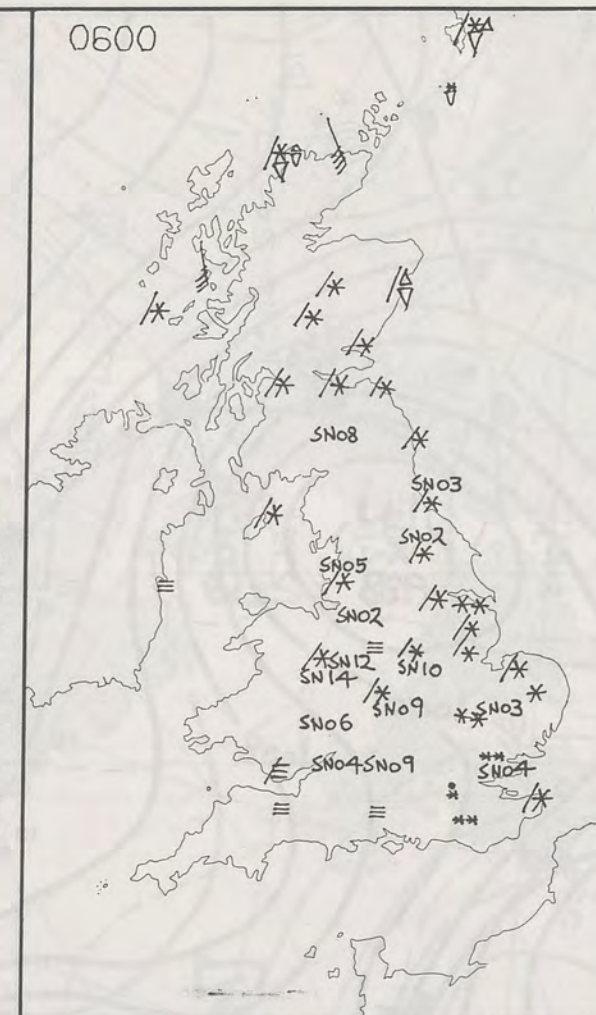 0600
SN08
SN03
SN02
SN05
SN02
SN12
SN10
SN14
SN09
SN03
SN06
SN04 SN09
SN04